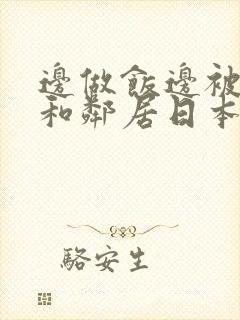 邊做飯邊被
和鄰居日本
駱安生